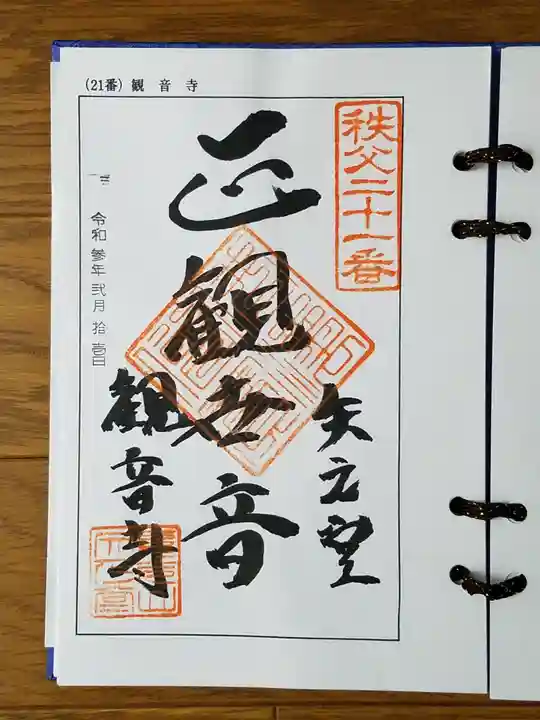 (21番) 観音寺
秩父二十一番
矢之堂
正観世音
観音寺
令和參年弐月拾壱日